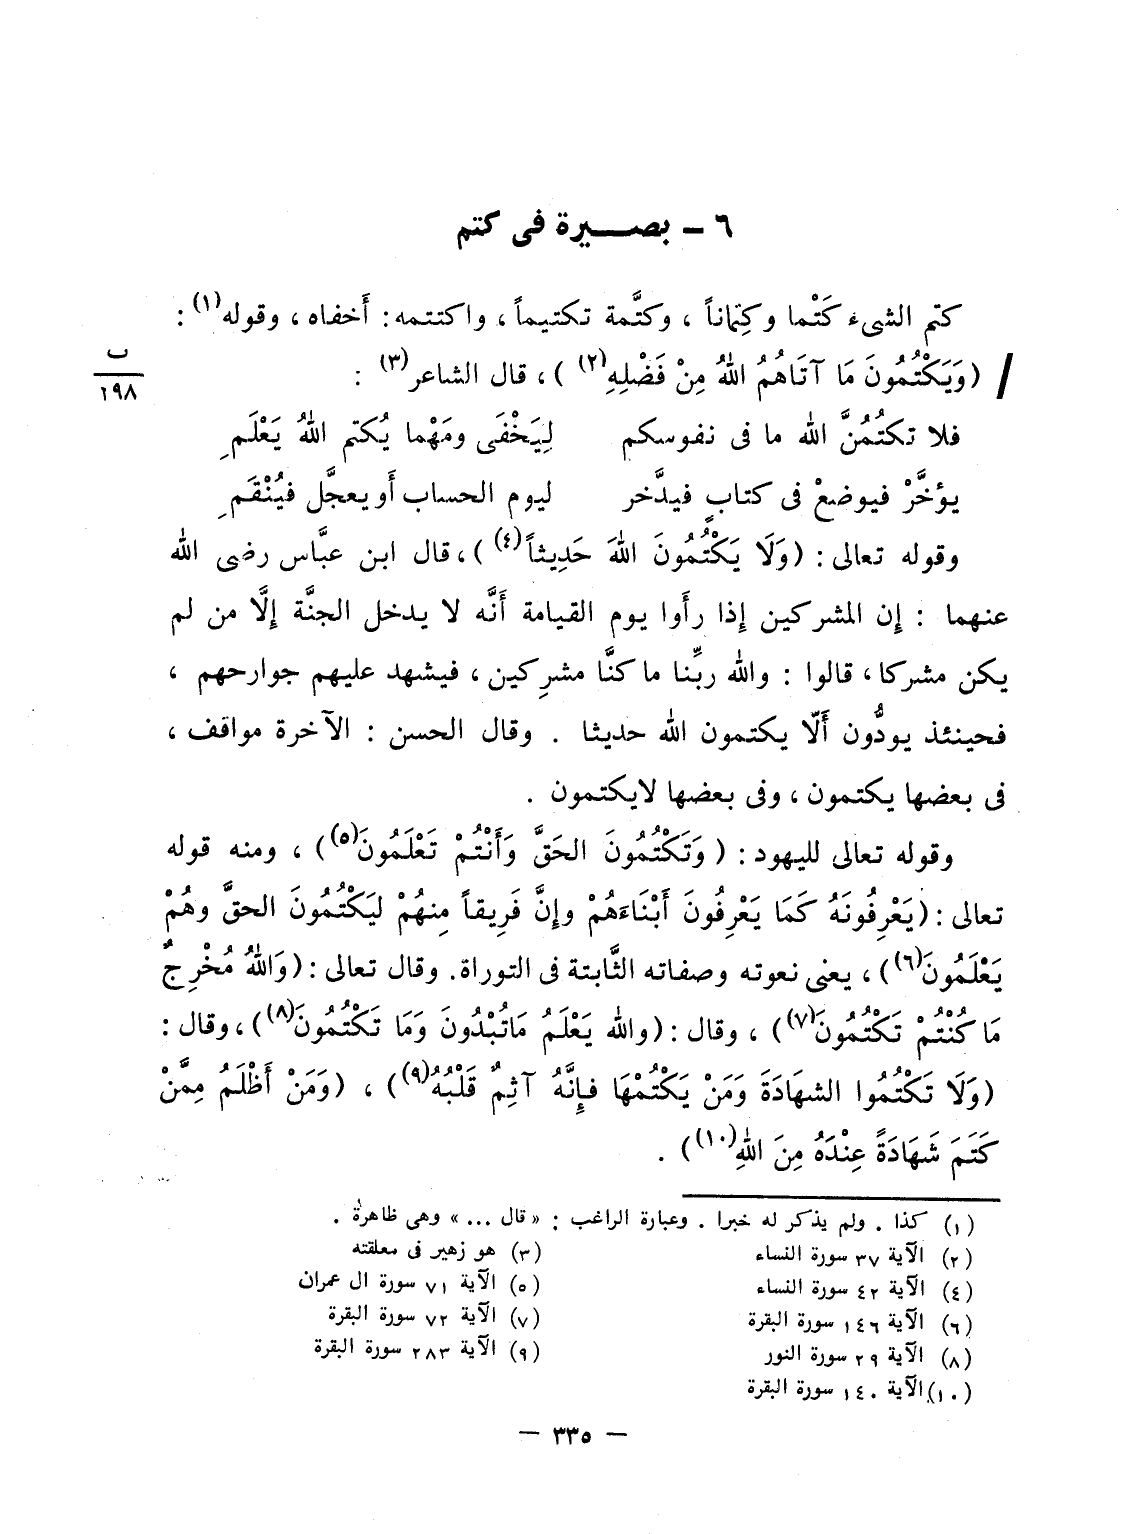 ٦ - بصيرة فى كتم
كتم الشىء كَتْما وكِتماناً ، وكتَّمة تكتيماً ، واكتتمه : أَخفاه ، وقوله(١) :
/ (وَيَكْتُمُونَ مَا آتَاهُمُ اللهُ مِنْ فَضْلِهِ(٢) ) ، قال الشاعر(٣) :
ب
١٩٨
فلا تكتُمُنَّ الله ما فى نفوسكم لِيَخْفَى ومَهْما يُكتم اللهُ يَعْلَمِ
يؤخَّرْ فيوضعْ فى كتابٍ فيدَّخر ليوم الحساب أَو يعجَّل فيُنْقَمِ
وقوله تعالى : (وَلَا يَكْتُمُونَ اللهَ حَدِيثاً(٤) ) ، قال ابن عبَّاس رضى الله
عنهما : إِن المشركين إِذا رأَوا يوم القيامة أَنَّه لا يدخل الجنَّة إِلَّا من لم
يكن مشركا ، قالوا : والله ربِّنا ما كنَّا مشركِين ، فيشهد عليهم جوارحهم ،
فحينئذ يودُّون أَلّا يكتمون الله حديثا . وقال الحسن : الآخرة مواقف ،
فى بعضها يكتمون ، وفى بعضها لايكتمون .
وقوله تعالى لليهود : ( وَتَكْتُمُونَ الحَقَّ وَأَنْتُمْ تَعْلَمُونَ(٥) ) ، ومنه قوله
تعالى : (يَعْرِفُونَهُ كَمَا يَعْرِفُونَ أَبْنَاءَهُمْ وإِنَّ فَرِيقاً مِنهُمْ ليَكْتُمُونَ الحقَّ وهُمْ
يَعْلَمُونَ(٦) ) ، يعنى نعوته وصفاته الثَّابتة فى التوراة. وقال تعالى : (وَاللهُ مُخْرِجٌ
مَا كُنْتُمْ تَكْتُمُونَ(٧) ) ، وقال : (والله يَعْلَمُ مَاتُبْدُونَ وَمَا تَكْتُمُونَ(٨) ) ، وقال :
(وَلَا تَكْتُمُوا الشهَادَةَ وَمَنْ يَكْتُمْهَا فإِنَّهُ آثِمٌ قَلْبُهُ(٩) ) ، (وَمَنْ أَظْلَمُ مِمَّنْ
كَتَمَ شَهَادَةً عِنْدَهُ مِنَ اللهِ(١٠) ) .
(١) كذا . ولم يذكر له خبرا . وعبارة الراغب : « قال ... » وهى ظاهرة .
(٢) الآية ٣٧ سورة النساء (٣) هو زهير فى معلقته
(٤) الآية ٤٢ سورة النساء (٥) الآية ٧١ سورة ال عمران
(٦) الآية ١٤٦ سورة البقرة (٧) الآية ٧٢ سورة البقرة
(٨) الآية ٢٩ سورة النور (٩) الآية ٢٨٣ سورة البقرة
(١٠) الآية ١٤٠ سورة البقرة
- ٣٣٥ -